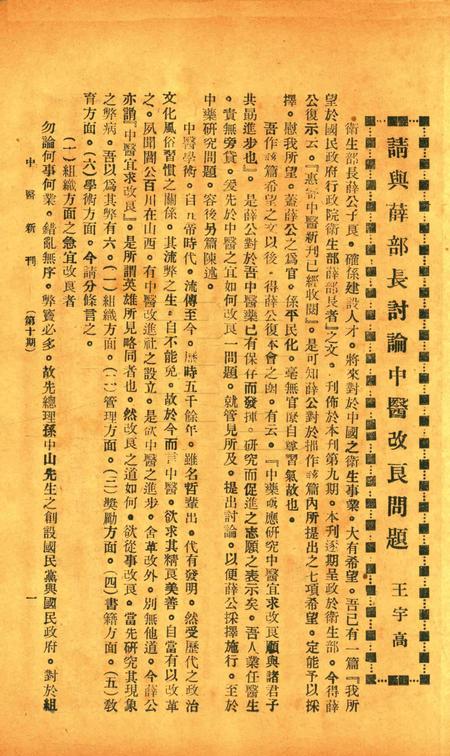 請與薛部長討論中醫改良問題
王宇高
衛生部長薛公子良。確係建設人才。將來對於中國之衛生事業。大有希望。吾已有一篇『我所
望於國民政府行政院衛生部薛部長者』之文。刊佈於本刊第九期。本刊逐期呈政於衛生部。今得薛
公復示云。『惠寄中醫新刊已經收閱』。是可知薛公對於拙作該篇內所提出之七項希望。定能予以採
擇。慰我所望。蓋薛公之為官。係平民化。毫無官歷自尊習氣故也。
吾作該篇希望之文以後。得薛公復本會之函。有云。『中藥亟應研究中醫宜求改良願與諸君子
共勗進步也』。是薛公對於吾中醫藥已有保存而發揮。研究而促進之志願之表示矣。吾人業任醫生
。責無旁貸。爰先於中醫之宜如何改良一問題。就管見所及。提出討論。以便薛公採擇施行。至於
中藥研究問題。容後另篇陳述。
中醫學術。自五帝時代。流傳至今。歷時五千餘年。雖名哲輩出。代有發明。然受歷代之政治
文化風俗習慣之關係。其流弊之生。自不能免。故於今而言中醫。欲求其精良美善。自當有以改革
之。夙聞閻公百川在山西。有中醫改進社之設立。是欲中醫之進步。舍革改外。別無他道。今薛公
亦謂『中醫宜求改良』。是所謂英雄所見略同者也。然改良之道如何。欲從事改良。當先研究其現象
之弊病。吾以爲其弊有六。(一)組織方面。(二)管理方面。(三)獎勵方面。(四)書籍方面。(五)教
育方面。(六)學術方面。今請分條言之。
(一)組織方面之急宜改良者
勿論何事何業。錯亂無序。弊竇必多。故先總理孫中山先生之創設國民黨與國民政府。對於組
中醫新刊 (第十期) 一